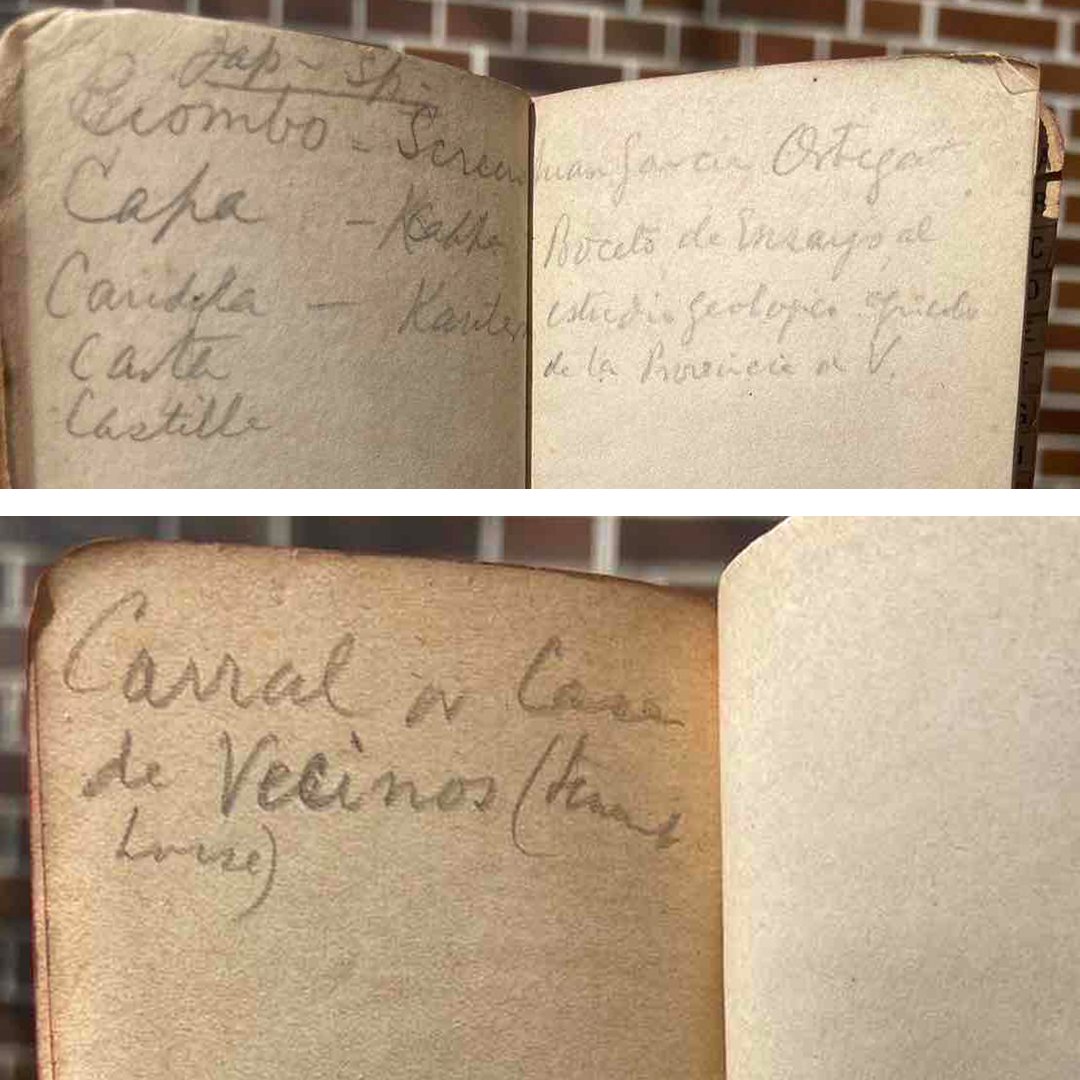 Jap - Sp.
Biombo - Screen
Capa - Kappa
Candela - Kantera
Carta
Castilla
Juan Garcia Ortega
Boceto de Ensayo al
estudio geologico agricola
de la Provincia de V.
Carral or Casa
de Vecinos (tenement
house)
A
B
C
D